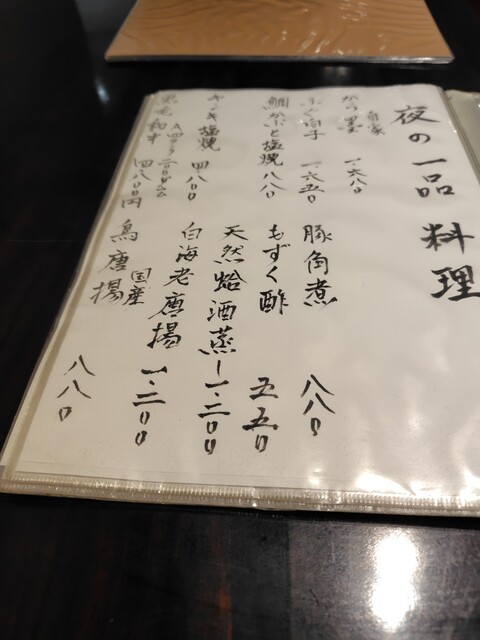 夜の一品料理
自家
から墨 一、六八〇
ふぐ白子 一、六五〇
鯛かぶと塩焼 八八〇
キンキ塩焼 四、八〇〇
黒毛和牛 四、八〇〇円
豚角煮 八八〇
もずく酢 五五〇
天然蛤酒蒸し 一、二〇〇
白海老唐揚 一、二〇〇
国産
鳥唐揚 八八〇